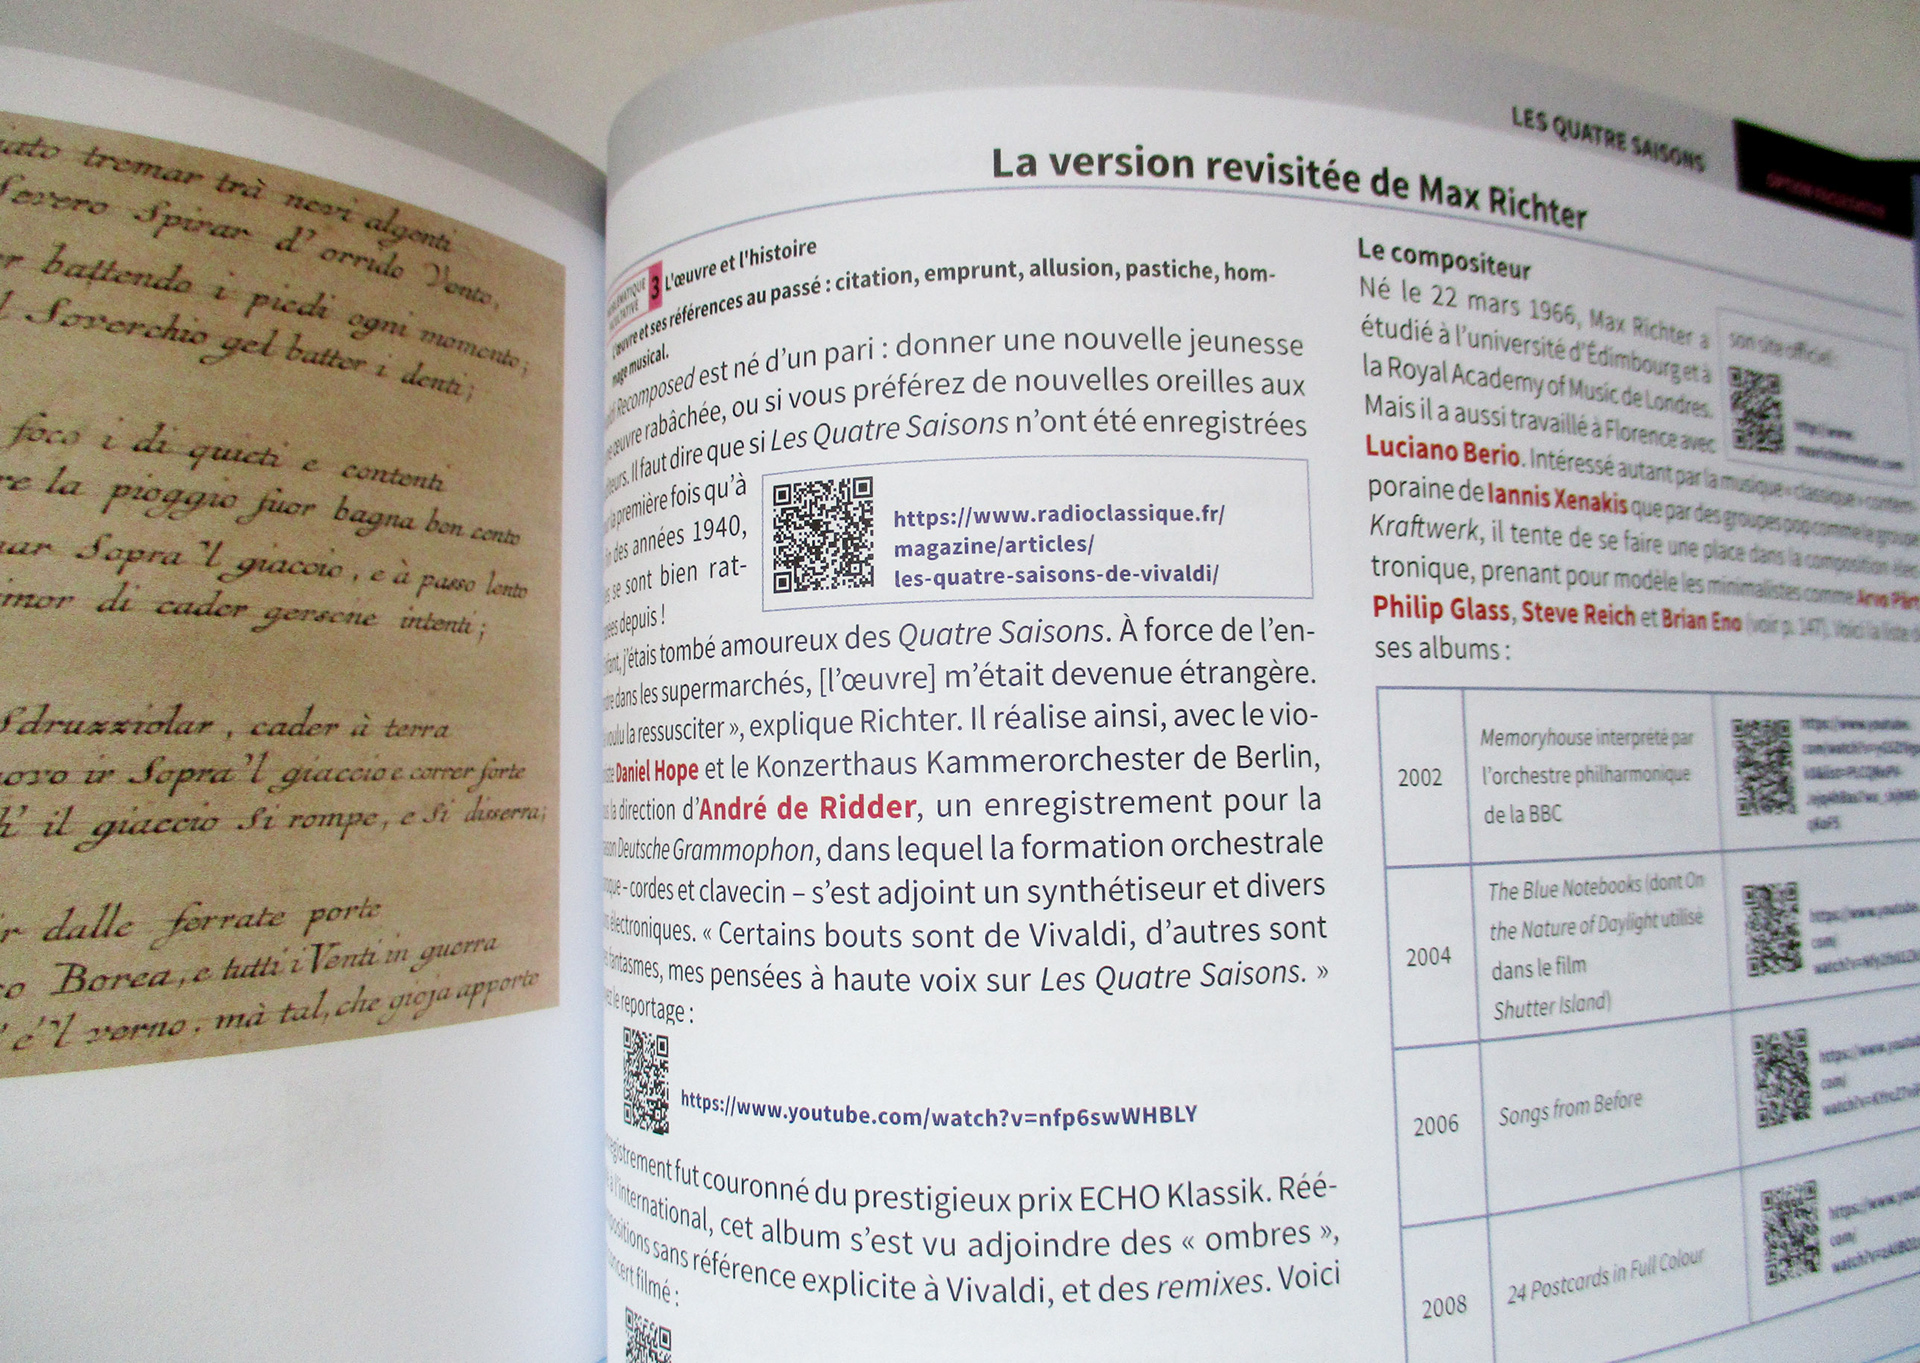 tremar trà nevi algenti
Severo Spirar d'orrido Vento,
battendo i piedi ogni momento;
Soverchio gel batter i denti;
foco i di quieti e contenti
la pioggio fuor bagna ben cento
Sopra 'l giaccio, e à passo lento
di cader gersene intenti;
Sdruzziolar, cader à terra
ir Sopra 'l giaccio e correr forte
il giaccio Si rompe, e Si disserra;
dalle ferrate porte
Borea, e tutti i Venti in guerra
é 'l verno, mà tal, che gioja apporte
LES QUATRE SAISONS
La version revisitée de Max Richter
3 L'œuvre et l'histoire
L'œuvre et ses références au passé : citation, emprunt, allusion, pastiche, hom-
mage musical.
Recomposed est né d'un pari : donner une nouvelle jeunesse
œuvre rabâchée, ou si vous préférez de nouvelles oreilles aux
Il faut dire que si Les Quatre Saisons n'ont été enregistrées
première fois qu'à
des années 1940,
se sont bien rat-
depuis !
https://www.radioclassique.fr/
magazine/articles/
les-quatre-saisons-de-vivaldi/
j'étais tombé amoureux des Quatre Saisons. À force de l'en-
dans les supermarchés, [l'œuvre] m'était devenue étrangère.
voulu la ressusciter », explique Richter. Il réalise ainsi, avec le vio-
Daniel Hope et le Konzerthaus Kammerorchester de Berlin,
la direction d'André de Ridder, un enregistrement pour la
Deutsche Grammophon, dans lequel la formation orchestrale
– cordes et clavecin – s'est adjoint un synthétiseur et divers
électroniques. « Certains bouts sont de Vivaldi, d'autres sont
fantasmes, mes pensées à haute voix sur Les Quatre Saisons. »
le reportage :
https://www.youtube.com/watch?v=nfp6swWHBLY
fut couronné du prestigieux prix ECHO Klassik. Réé-
à l'international, cet album s'est vu adjoindre des « ombres »,
sans référence explicite à Vivaldi, et des remixes. Voici
filmé :
Le compositeur
Né le 22 mars 1966, Max Richter a
étudié à l'université d'Édimbourg et à
la Royal Academy of Music de Londres.
Mais il a aussi travaillé à Florence avec
Luciano Berio. Intéressé autant par la musique « classique » contem-
poraine de Iannis Xenakis que par des groupes pop comme le groupe
Kraftwerk, il tente de se faire une place dans la composition élec-
tronique, prenant pour modèle les minimalistes comme Arvo Pärt
Philip Glass, Steve Reich et Brian Eno (voir p. 147). Voici la liste
ses albums :
son site officiel :
http://www.
maxrichtermusic.com
2002
Memoryhouse interprété par
l'orchestre philharmonique
de la BBC
https://www.youtube.
2004
The Blue Notebooks (dont On
the Nature of Daylight utilisé
dans le film
Shutter Island)
https://www.youtube.
com/
2006
Songs from Before
https://www.youtu
com/
2008
24 Postcards in Full Colour
https://www.you
com/